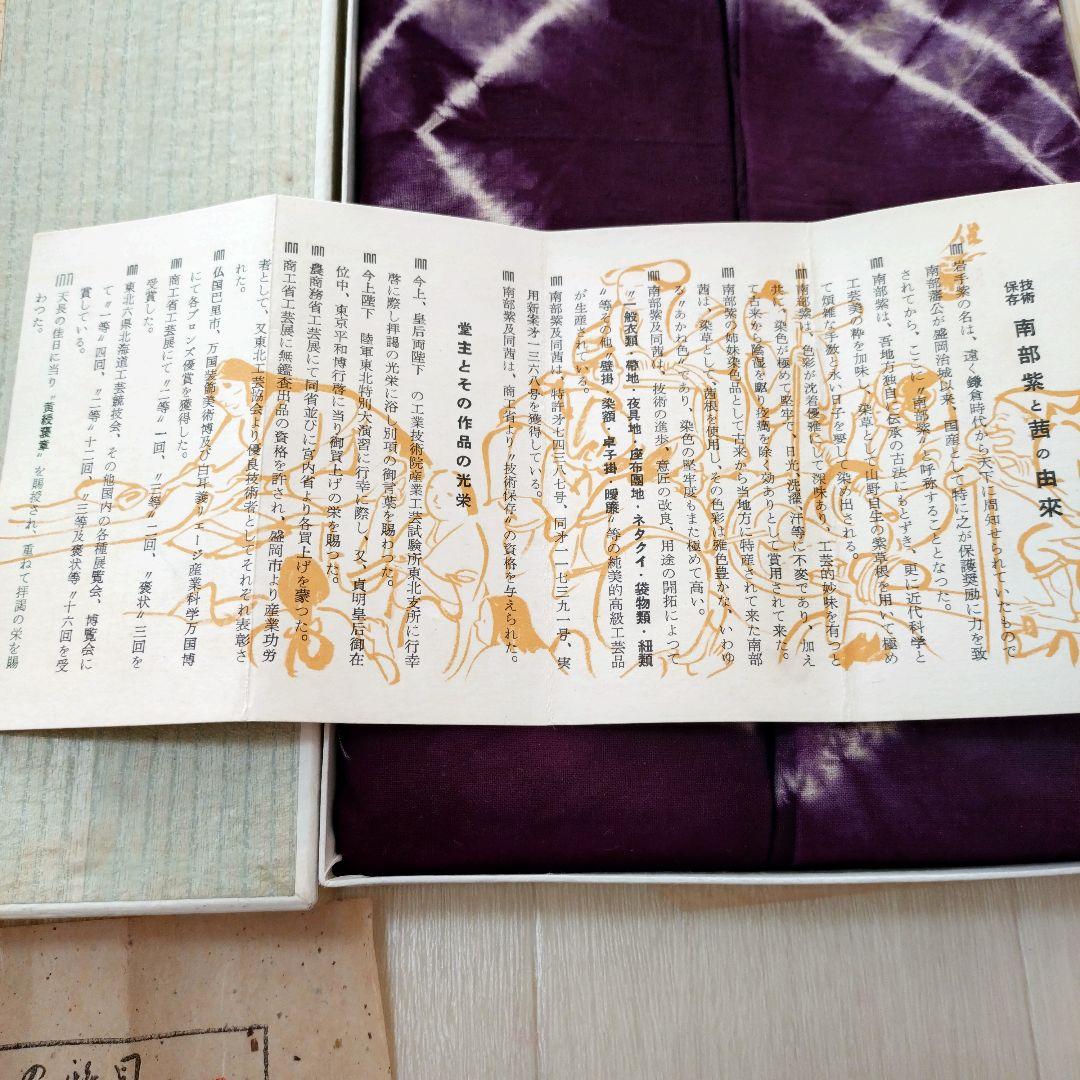 技術
保存
南部紫と茜の由來
岩手紫の名は、遠く鎌倉時代から天下に周知せられていたもので
南部藩公が盛岡治城以来、国産として特に之が保護奨励に力を致
されてから、ここに〝南部紫〟と呼称することとなつた。
南部紫は、吾地方独自に伝承の古法にもとずき、更に近代科学と
工芸美の粋を加味し、染草として山野自生の紫草根を用いて極め
て煩雑な手数と永い日子を要して染め出される。
南部紫は、色彩が沈着優雅にして深味あり、工芸的妙味を有つと
共に、染色が極めて堅牢で、日光、洗濯、汗等に不変であり、加え
て古来から陰湿を駆り疫癘を除く効ありとして賞用されて来た。
南部紫の姉妹染色品として古来から当地方に特産されて来た南部
茜は、染草として、茜根を使用し、その色彩は雅色豊かな、いわゆ
る〝あかね色〟であり、染色の堅牢度もまた極めて高い。
南部紫及同茜は、技術の進歩、意匠の改良、用途の開拓によつて
〝一般衣類・帶地・夜具地・座布團地・ネタクイ・袋物類・紐類
〝等その他〝壁掛・染額・卓子掛・暖簾〟等の純美的高級工芸品
が生産されている。
南部紫及同茜は、特許才七四三八七号、同才一一七三三九一号、実
用新案才一三六八号を獲得している。
南部紫及同茜は、商工省より〝技術保存〟の資格を与えられた。
堂主とその作品の光栄
今上、皇后両陛下 の工業技術院産業工芸試験所東北支所に行幸
啓に際し拝謁の光栄に浴し別項の御言葉を賜わつた。
今上陛下 陸軍東北特別大演習に行幸に際し、又、貞明皇后御在
位中、東京平和博行啓に当り御買上げの栄を賜つた。
農商務省工芸展にて同省並びに宮内省より各買上げを蒙つた。
商工省工芸展に無鑑査出品の資格を許され、盛岡市より産業功労
者として、又東北工芸協会より優良技術者としてそれぞれ表彰さ
れた。
仏国巴里市、万国装飾美術博及び白耳義リエージ産業科学万国博
にて各ブロンズ優賞を獲得した。
商工省工芸展にて〝二等〟一回、〝三等〟二回、〝褒状〟三回を
受賞した。
東北六県北海道工芸競技会、その他国内の各種展覧会、博覧会に
て〝一等〟四回、〝二等〟十二回、〝三等及褒状等〟十六回を受
賞している。
天長の佳日に当り〝黄綬褒章〟を賜授され、重ねて拝謁の栄を賜
わつた。